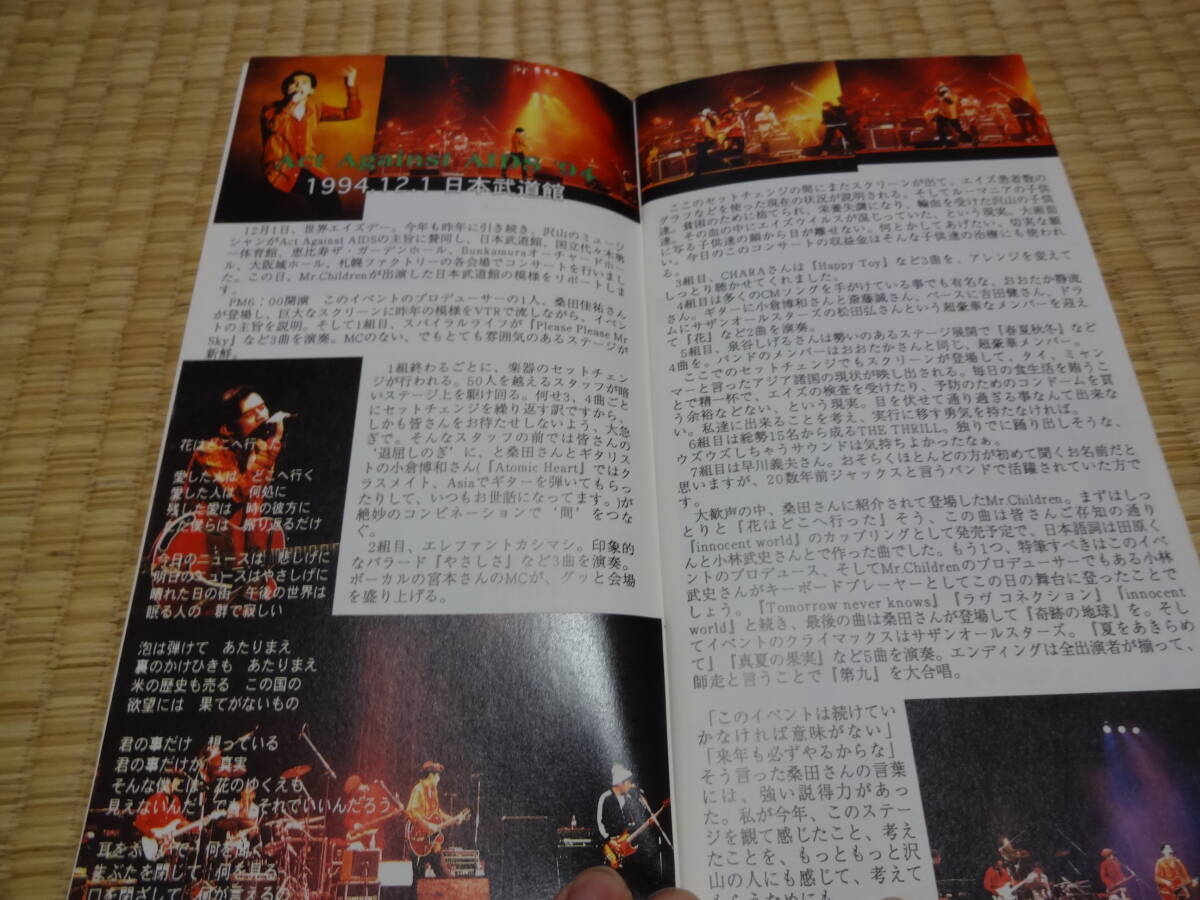 Act Against AIDS '94
1994.12.1 日本武道館
12月1日、世界エイズデー。今年も昨年に引き続き、沢山のミュージ
シャンがAct Against AIDSの主旨に賛同し、日本武道館、国立代々木第
一体育館、恵比寿ザ・ガーデンホール、Bunkamuraオーチャードホー
ル、大阪城ホール、札幌ファクトリーの各会場でコンサートを行いまし
た。この日、Mr.Childrenが出演した日本武道館の模様をリポートしま
す。
PM6：00開演 このイベントのプロデューサーの1人、桑田佳祐さん
が登場し、巨大なスクリーンに昨年の模様をVTRで流しながら、イベン
トの主旨を説明。そして1組目、スパイラルライフが『Please Please Mr
Sky』など3曲を演奏。MCのない、でもとても雰囲気のあるステージが
新鮮。
1組終わるごとに、楽器のセットチェン
ジが行われる。50人を越えるスタッフが暗
いステージ上を駆け回る。何せ3、4曲ごと
にセットチェンジを繰り返す訳ですから、
しかも皆さんをお待たせしないよう、大急
ぎで。そんなスタッフの前では皆さんの
'退屈しのぎ'に、と桑田さんとギタリス
トの小倉博和さん(『Atomic Heart』ではク
ラスメイト、Asiaでギターを弾いてもらっ
たりして、いつもお世話になってます。)が
絶妙のコンビネーションで'間'をつな
ぐ。
2組目、エレファントカシマシ。印象的
なバラード『やさしさ』など3曲を演奏。
ボーカルの宮本さんのMCが、グッと会場
を盛り上げる。
花はどこへ行った
愛した人は どこへ行く
愛した人は 何処に
残した愛は 時の彼方に
ただ僕らは 振り返るだけ
今日のニュースは 悲しげに
明日のニュースはやさしげに
晴れた日の街 午後の世界は
眠る人の 群で寂しい
泡は弾けて あたりまえ
裏のかけひきも あたりまえ
米の歴史も売る この国の
欲望には 果てがないもの
君の事だけ 想っている
君の事だけが 真実
そんな僕には 花のゆくえも
見えないんだ でも それでいいんだろう
耳をふさいで 何を聞く
まぶたを閉じて 何を見る
口を閉ざして 何が言えるの
ここのセットチェンジの間にまたスクリーンが出て、エイズ患者数の
グラフなどを使った現在の状況が説明される。そしてルーマニアの子供
達。貧困のために捨てられ、栄養失調になり、輸血を受けた沢山の子供
達。その血の中にエイズウイルスが混じっていた、という現実。大画面
に写る子供達の顔から目が離せない。何とかしてあげたい。切実な願
い。今日のこのコンサートの収益金はそんな子供達の治療にも使われ
る。
3組目、CHARAさんは『Happy Toy』など3曲を、アレンジを変えて
しっとり聴かせてくれました。
4組目は多くのCMソングを手がけている事でも有名な、おおたか静流
さん。ギターに小倉博和さんと斎藤誠さん、ベースに吉田健さん、ドラ
ムにサザンオールスターズの松田弘さんという超豪華なメンバーを迎え
て『花』など2曲を演奏。
5組目、泉谷しげるさんは勢いのあるステージ展開で『春夏秋冬』など
4曲を。バンドのメンバーはおおたかさんと同じ、超豪華メンバー。
ここでのセットチェンジでもスクリーンが登場して、タイ、ミャン
マーと言ったアジア諸国の現状が映し出される。毎日の食生活を賄うこ
とで精一杯で、エイズの検査を受けたり、予防のためのコンドームを買
う余裕などない、という現実。目を伏せて通り過ぎる事なんて出来な
い。私達に出来ることを考え、実行に移す勇気を持たなければ。
6組目は総勢15名から成るTHE THRILL。独りでに踊り出しそうな、
ウズウズしちゃうサウンドは気持ちよかったなぁ。
7組目は早川義夫さん。おそらくほとんどの方が初めて聞くお名前だと
思いますが、20数年前ジャックスと言うバンドで活躍されていた方で
す。
大歓声の中、桑田さんに紹介されて登場したMr.Children。まずはしっ
とりと『花はどこへ行った』そう、この曲は皆さんご存知の通り
『innocent world』のカップリングとして発売予定で、日本語詞は田原く
んと小林武史さんとで作った曲でした。もう1つ、特筆すべきはこのイベ
ントのプロデュース、そしてMr.Childrenのプロデューサーでもある小林
武史さんがキーボードプレーヤーとしてこの日の舞台に登ったことで
しょう。『Tomorrow never knows』『ラヴ コネクション』『innocent
world』と続き、最後の曲は桑田さんが登場して『奇跡の地球』を。そし
てイベントのクライマックスはサザンオールスターズ。『夏をあきらめ
て』『真夏の果実』など5曲を演奏。エンディングは全出演者が揃って、
師走と言うことで『第九』を大合唱。
「このイベントは続けてい
かなければ意味がない」
「来年も必ずやるからな」
そう言った桑田さんの言葉
には、強い説得力があっ
た。私が今年、このステー
ジを観て感じたこと、考え
たことを、もっともっと沢
山の人にも感じて、考えて
もらうためにも